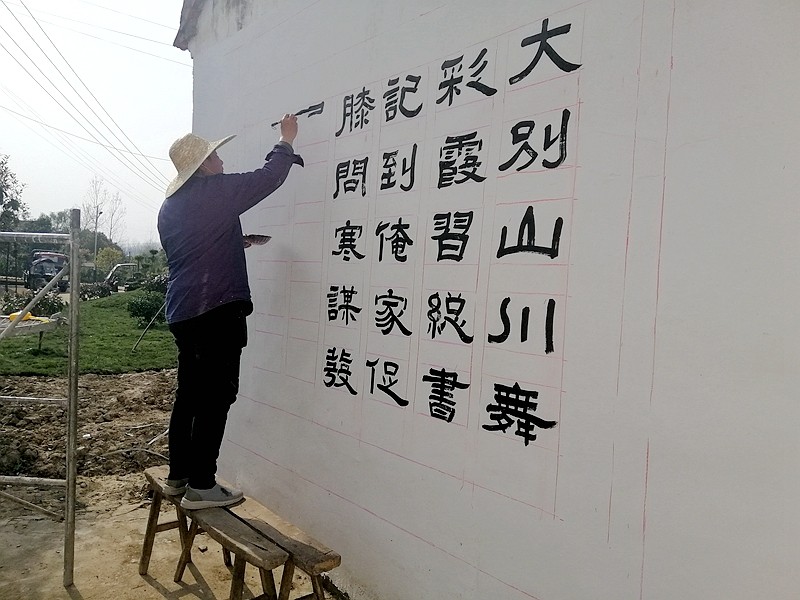 大別山川舞
彩霞習総書
記到俺家促
膝問寒謀發